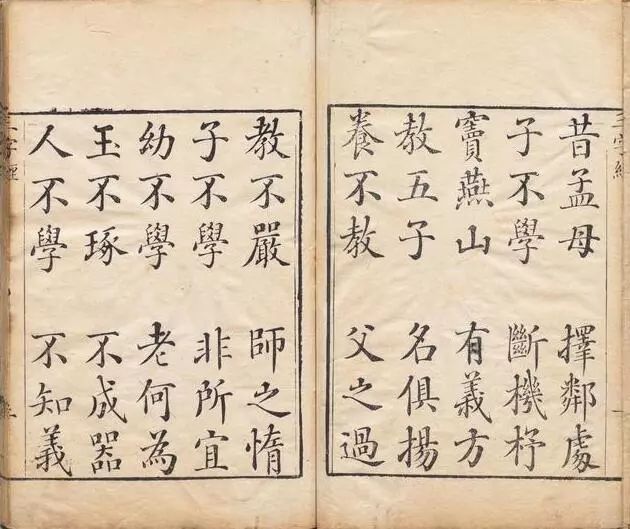 三字經
昔孟母 擇鄰處
子不學 斷機杼
竇燕山 有義方
教五子 名俱揚
養不教 父之過
教不嚴 師之惰
子不學 非所宜
幼不學 老何為
玉不琢 不成器
人不學 不知義
三字經